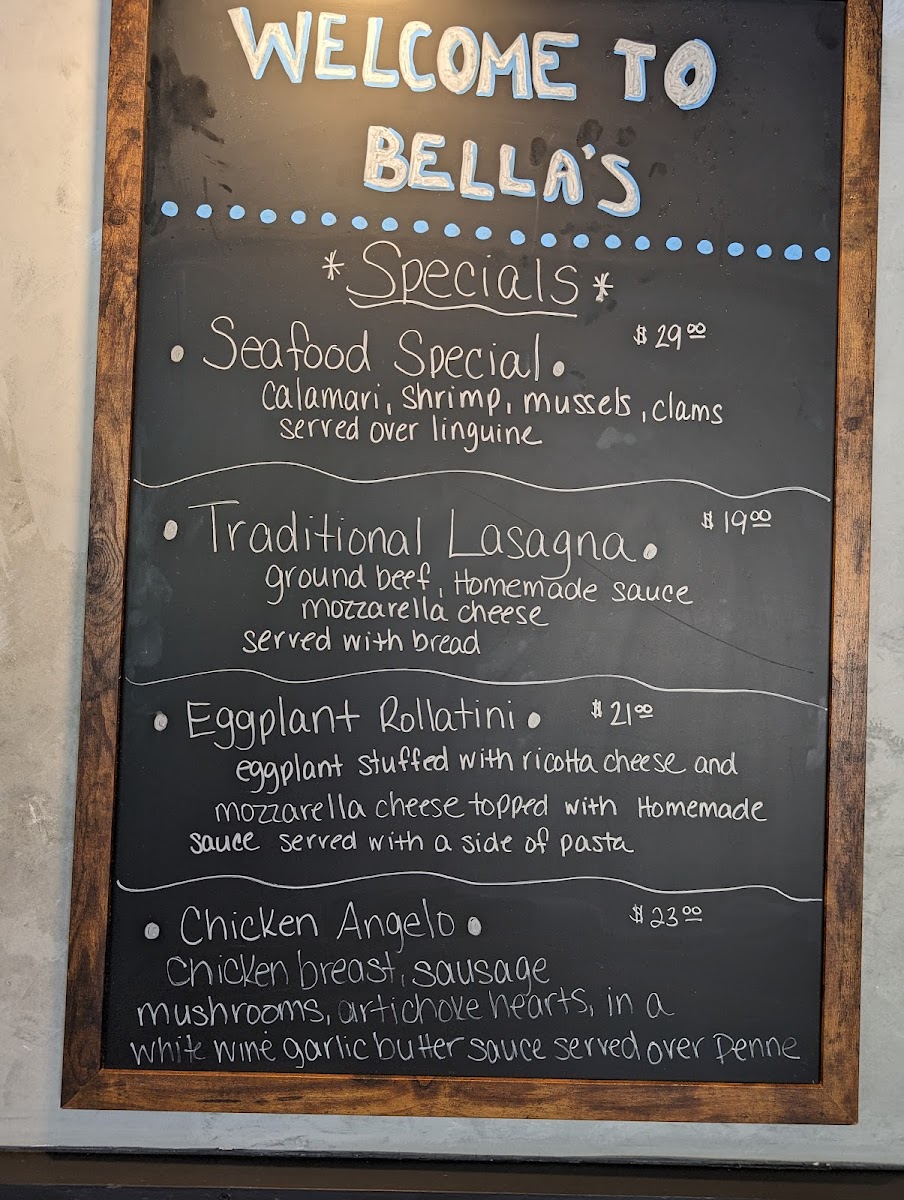 WELCOME TO
BELLA'S
*Specials*
• Seafood Special. $29.00
calamari, shrimp, mussels, clams
served over linguine
• Traditional Lasagna. $19.00
ground beef, Homemade sauce
mozzarella cheese
served with bread
• Eggplant Rollatini. $21.00
eggplant stuffed with ricotta cheese and
mozzarella cheese topped with Homemade
sauce served with a side of pasta
• Chicken Angelo. $23.00
Chicken breast, sausage
mushrooms, artichoke hearts, in a
white wine garlic butter sauce served over Penne